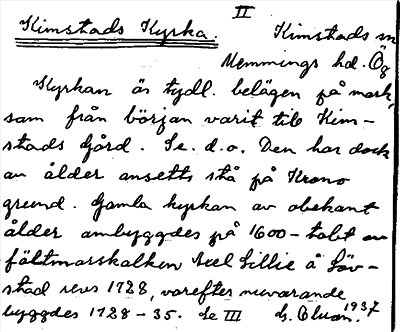 II
Kimstads Kyrka. Kimstads sn
Memmings hd. Ög
Kyrkan är tydl. belägen på mark,
som från början varit till Kim-
stads Gård. Se. d.o. Den har dock
av ålder ansetts stå på Krono
grund. Gamla kyrkan av obekant
ålder ombyggdes på 1600-talet av
fältmarskalken Axel Lillie å Löv-
stad revs 1728, varefter nuvarande
byggdes 1728-35. Se III G. 1937.